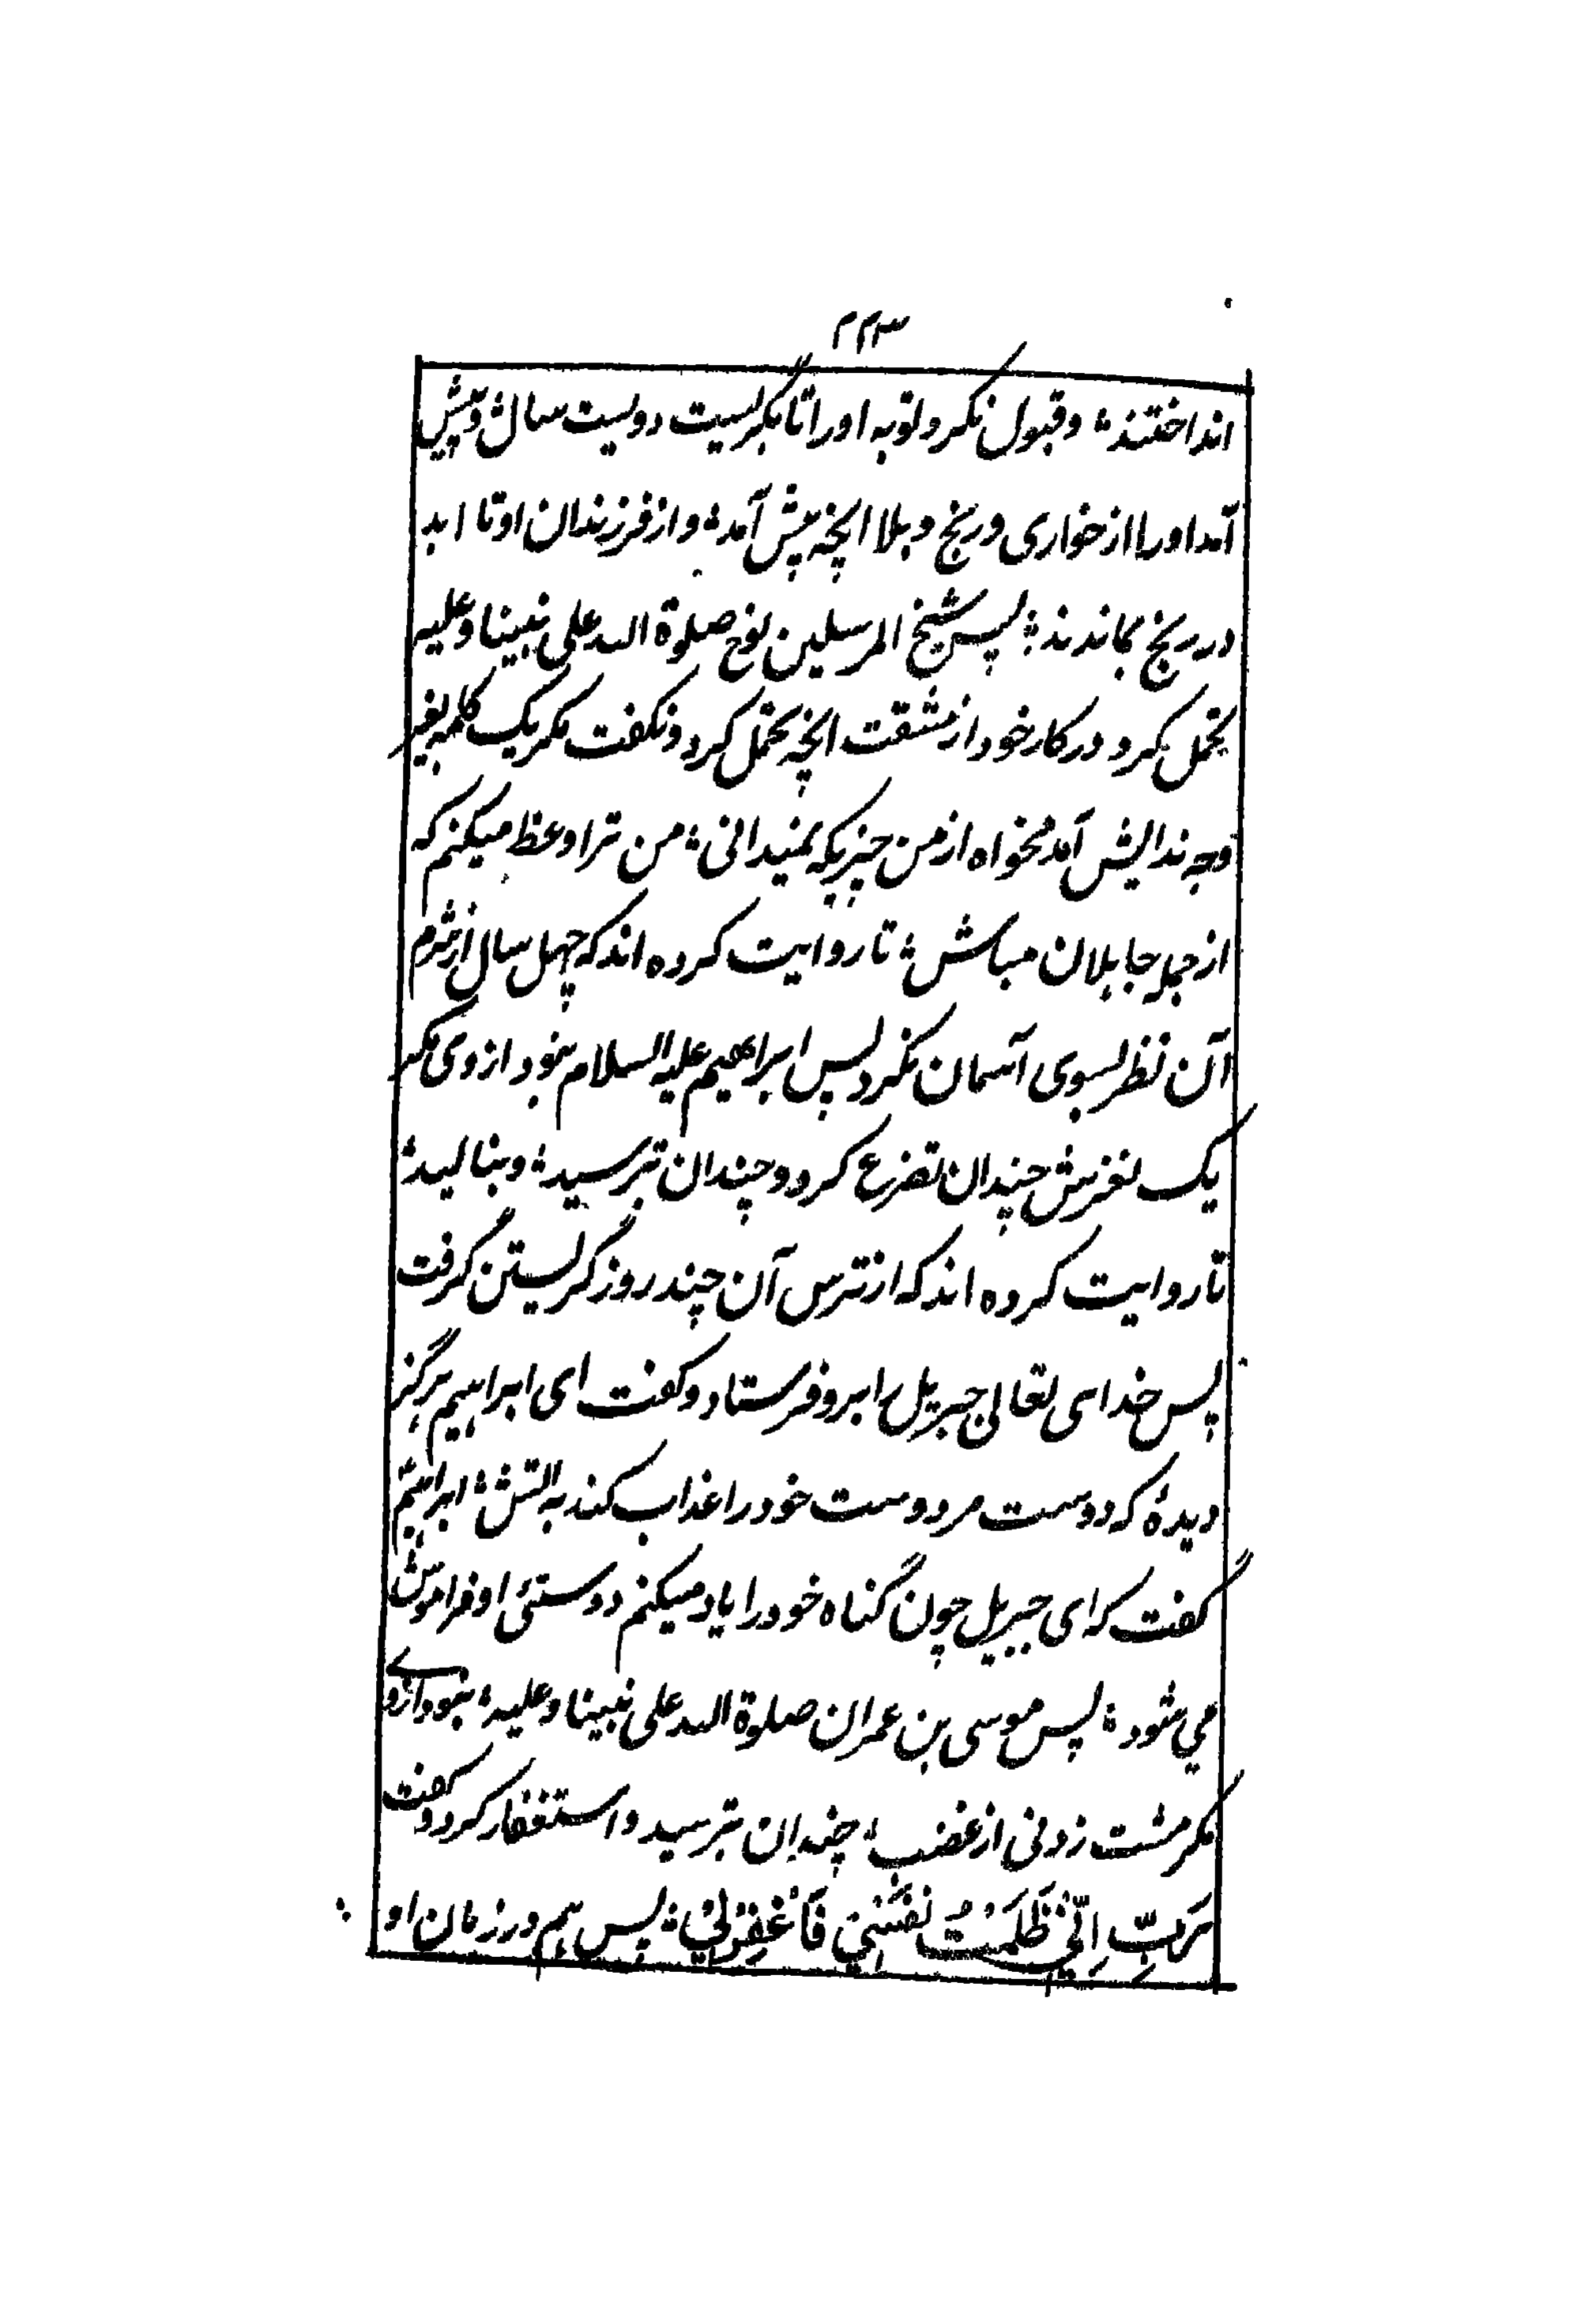 ۲۲۳
انداختند؛ و قبول نکرد توبه او را تا بگریست دویست سال؛ و پیش
آمد او را از خواری و رنج و بلا انچه پیش آمد؛ و از فرزندان او تا ابد
در رنج بماندند؛ پس شیخ المرسلین نوح صلوة الله علی نبینا وعلیه
تحمل کرد در کار خود از مشقت انچه تحمل کرد و نگفت مگر یک کلمه بغیر
وجه ندایش آمد مخواه از من چیزیکه نمیدانی؛ من ترا وعظ میکنم که
از جمله جاهلان مباش؛ تا روایت کرده اند که چهل سال از شرم
آن نظر بسوی آسمان نکرد پس ابراهیم علیه السلام نبود از وی مگر
یک لغزش چندان تضرع کرد و چندان بترسید؛ و بنالید؛
تا روایت کرده اند که از ترس آن چند روز گریستن گرفت
پس خدای تعالی جبریل را برو فرستاد و گفت ای ابراهیم هرگز
دیدهٔ که دوست مر دوست خود را عذاب کند به آتش؛ ابراهیم
گفت که ای جبریل چون گناه خود را یاد میکنم دوستئ او فراموش
می شود؛ پس موسی بن عمران صلوة الله علی نبینا وعلیه؛ نبود از وے
مگر مشت زدنی از غضب؛ چندان بترسید و استغفار کرد و گفت
رَبِّ اِنِّیْ ظَلَمْتُ نَفْسِیْ فَاغْفِرْ لِیْ؛ پس هم در زمان او